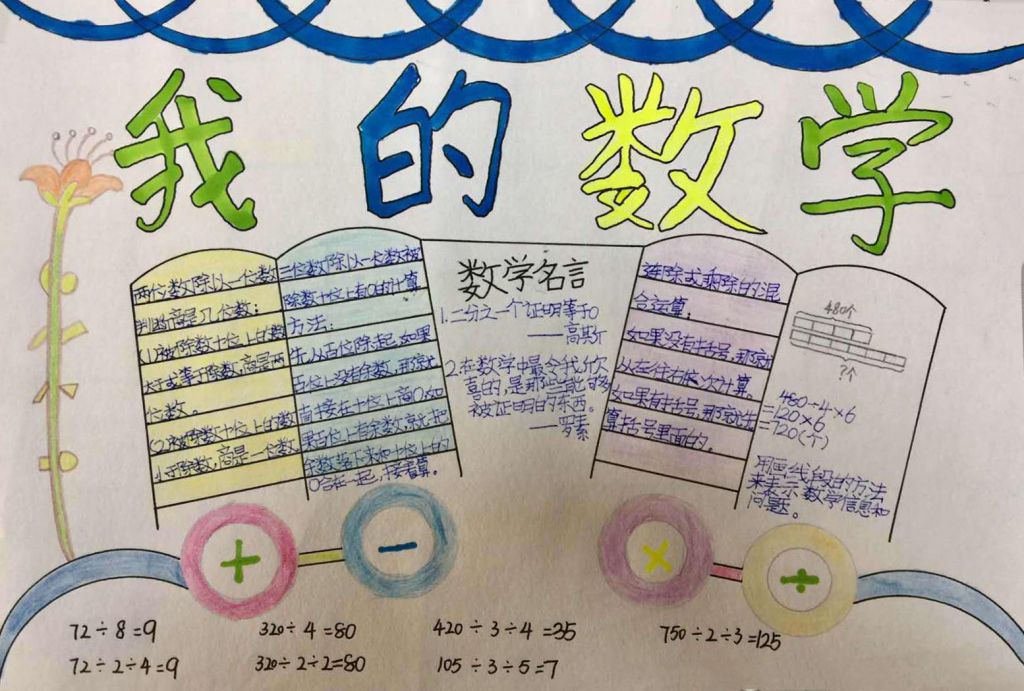 我的数学
两位数除以一位数
判断商是几位数：
(1)被除数十位上的数
大于或等于除数，商是两
位数。
(2)被除数十位上的数
小于除数，商是一位数。
三位数除以一位数被
除数十位上有0的计算
方法：
先从百位除起，如果
百位上没有余数，那就
直接在十位上商0，如
果百位上有余数，就把
余数落下来和十位上的
0合在一起，接着算。
数学名言
1.二分之一个证明等于0
——高斯
2.在数学中最令我欣
喜的，是那些能够
被证明的东西。
——罗素
连除或乘除的混
合运算：
如果没有括号，那就
从左往右依次计算。
如果有括号，那就先
算括号里面的。
480个
?个
480÷4×6
=120×6
=720(个)
用画线段的方法
来表示数学信息和
问题。
+
−
×
÷
72÷8=9
320÷4=80
420÷3÷4=35
750÷2÷3=125
72÷2÷4=9
320÷2÷2=80
105÷3÷5=7